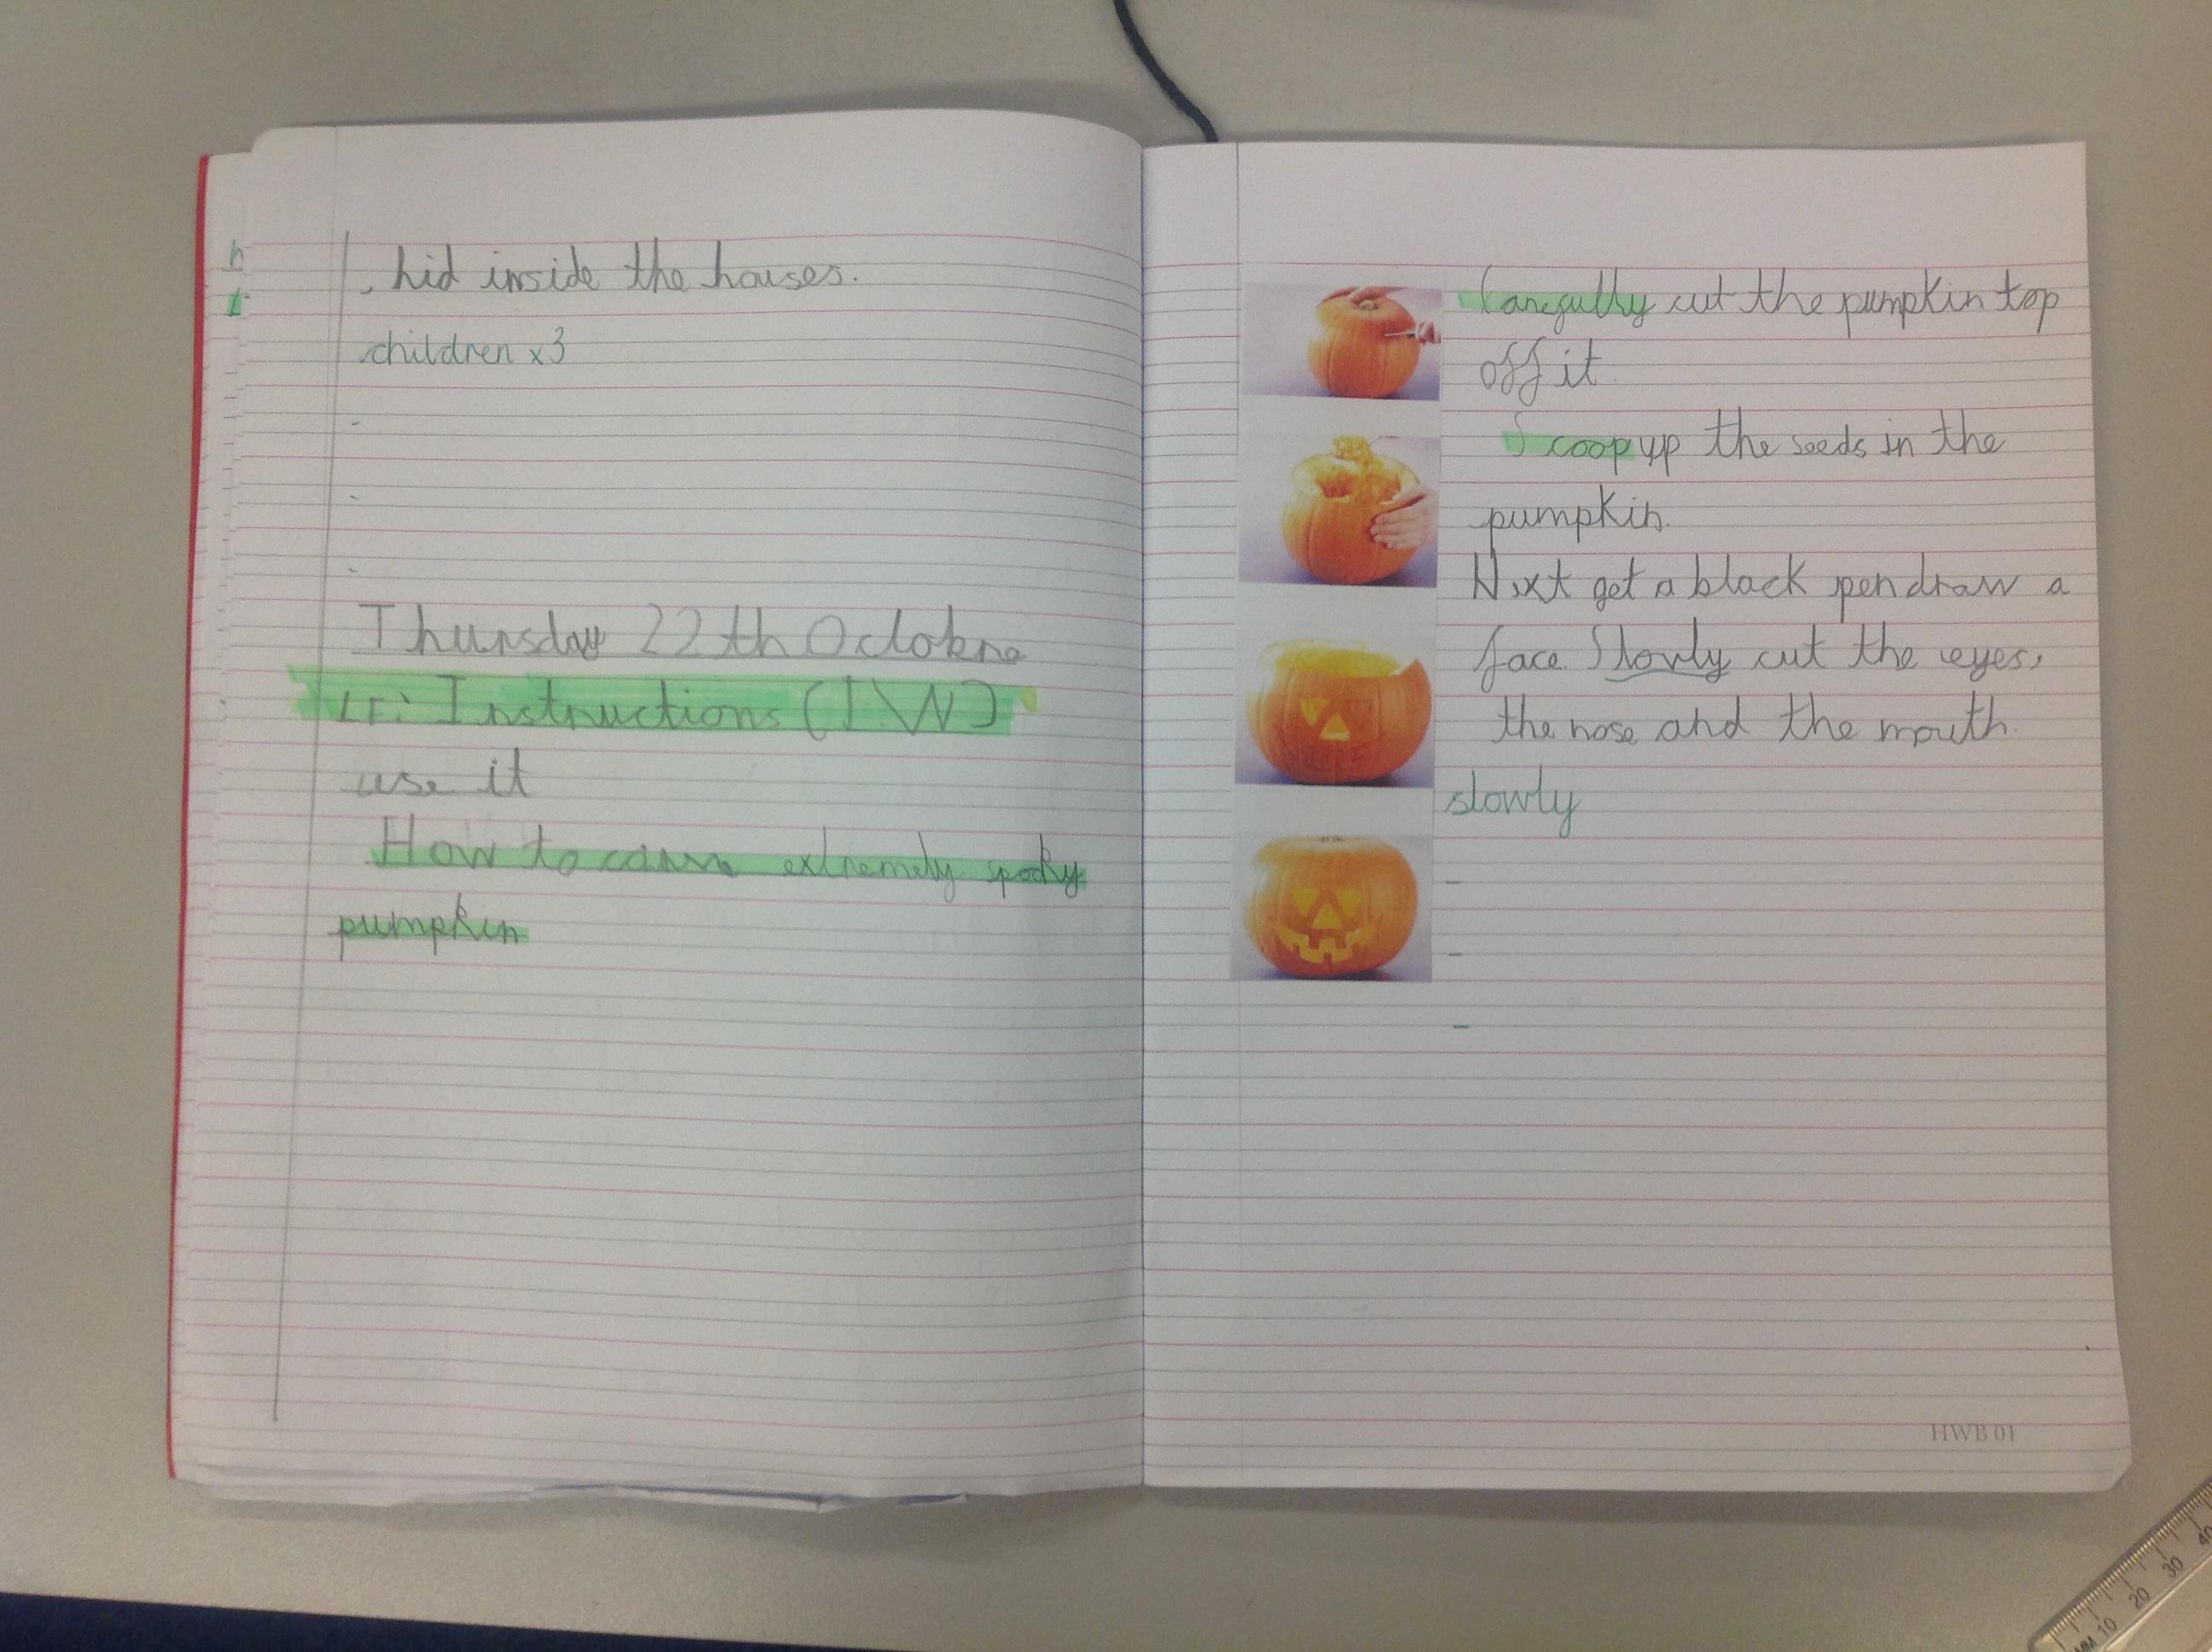 h
t
, hid inside the houses.
children x3
Thursday 22th Octobre
LF: Instructions (IW)
use it
How to carve extremely spooky
pumpkin
Carefully cut the pumpkin top
off it.
Scoop up the seeds in the
pumpkin.
Next get a black pen draw a
face. Slowly cut the eyes,
the nose and the mouth.
slowly
HWB 01
MM 10 20 30 40